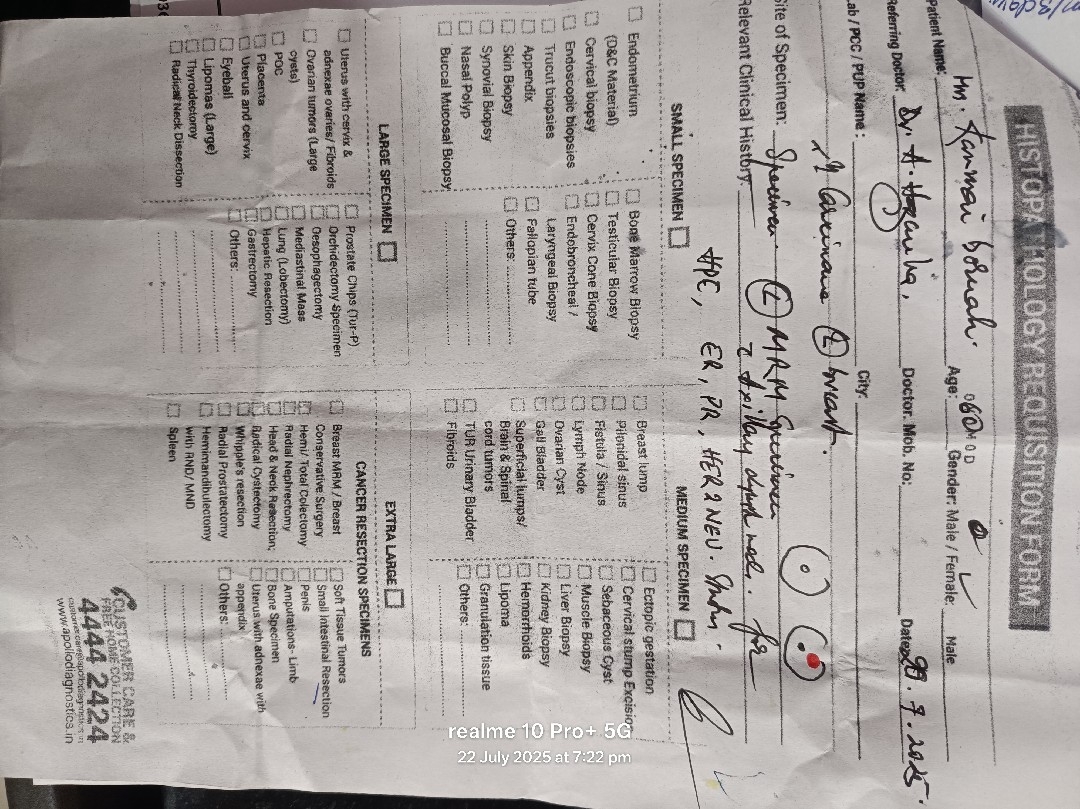 HISTOPATHOLOGY REQUISITION FORM
Patient Name: Age: 60 Gender: Male / Female: Male
Referring Doctor: Dr. A. Doctor. Mob. No: Dated 7.2025
Lab / PCC / PUP Name: City:
Carcinoma (L) breast.
Site of Specimen: Specimen. (L) MRM Specimen
Relevant Clinical History. for
HPE, ER, PR, HER2NEU. Study.
SMALL SPECIMEN
Endometrium
(D&C Material)
Cervical biopsy
Endoscopic biopsies
Trucut biopsies
Appendix
Skin Biopsy
Synovial Biopsy
Nasal Polyp
Buccal Mucosal Biopsy
Bone Marrow Biopsy
Testicular Biopsy
Cervix Cone Biopsy
Endobroncheal /
Laryngeal Biopsy
Fallopian tube
Others:
MEDIUM SPECIMEN
Breast lump
Pilonidal sinus
Fistula / Sinus
Lymph Node
Ovarian Cyst
Gall Bladder
Superficial lumps/
Brain & Spinal
cord tumors
TUR Urinary Bladder
Fibroids
Ectopic gestation
Cervical stump Excision
Sebaceous Cyst
Muscle Biopsy
Liver Biopsy
Kidney Biopsy
Hemorrhoids
Lipoma
Granulation tissue
Others:
LARGE SPECIMEN
Uterus with cervix &
adnexae ovaries/ Fibroids
Ovarian tumors (Large
cysts)
POC
Placenta
Uterus and cervix
Eyeball
Lipomas (Large)
Thyroidectomy
Radical Neck Dissection
Prostate Chips (Tur-P)
Orchidectomy Specimen
Oesophagectomy
Mediastinal Mass
Lung (Lobectomy)
Hepatic Resection
Gastrectomy
Others:
EXTRA LARGE
CANCER RESECTION SPECIMENS
Breast MRM / Breast
Conservative Surgery
Hemi/ Total Colectomy
Radial Nephrectomy
Head & Neck Resection;
Radical Cystectomy
Whipple's resection
Radial Prostatectomy
Hemimandibulectomy
with RND/ MND
Spleen
Soft Tissue Tumors
Small Intestinal Resection
Penis
Amputations- Limb
Bone Specimen
Uterus with adnexae with
appendix
Others:
CUSTOMER CARE &
FREE HOME COLLECTION
4444 2424
customercare@apollodiagnostics.in
www.apollodiagnostics.in
realme 10 Pro+ 5G
22 July 2025 at 7:22 pm